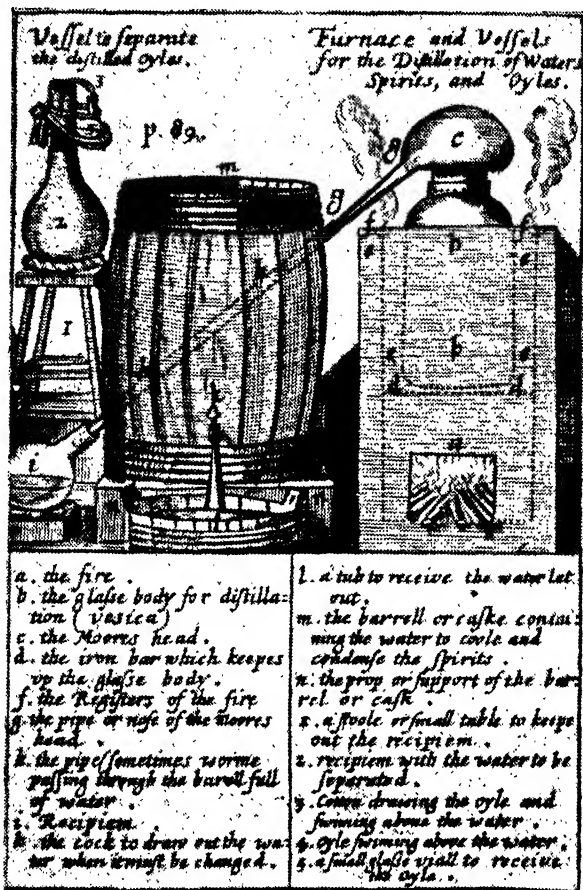 Vessel to separate
the distilled oyles.
Furnace and Vessels
for the Distillation of Waters
Spirits, and Oyles.
p. 89.
3
2
1
m
g
g
c
f
f
e
e
b
h
h
k
b
e
e
d
d
a
i
l
n
n
a. the fire.
b. the glasse body for distilla:
tion (vesica)
c. the Moores head.
d. the iron bar which keepes
vp the glasse body.
f. the Registers of the fire
g. the pipe or nose of the moores
head.
h. the pipe sometimes worme
passing through the barrell full
of water.
i. Recipiem.
k. the cock to draw out the wa:
ter when it must be changed.
l. a tub to receive the water let
out.
m. the barrell or caske contai:
ning the water to coole and
condense the spirits.
n. the prop or support of the bar:
rel or cask.
1. a stoole or small table to keepe
out the recipiem.
2. recipiem with the water to be
separated.
3. Cotton drawing the oyle and
swiming above the water.
4. Oyle swiming above the water.
5. a small glasse viall to receive
the oyle.